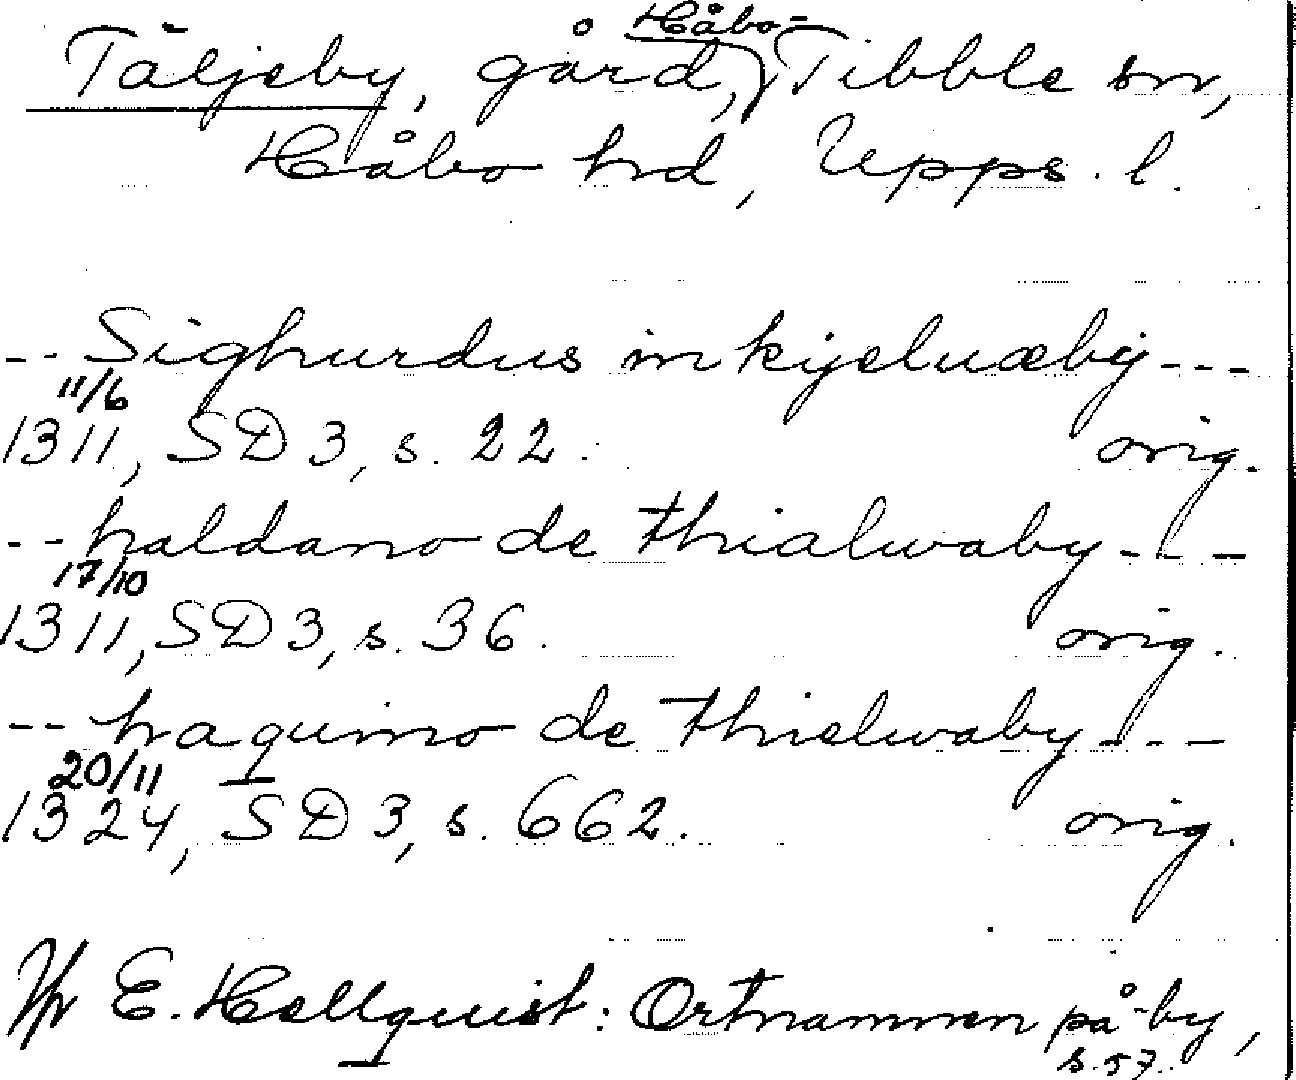 Håbo-
Täljeby, gård, Tibble sn,
Håbo hd, Upps. l.
-- Sighurdus in kyeluæby ---
11/6
1311, SD 3, s. 22. orig.
-- haldano de thialwaby ---
17/10
1311, SD 3, s. 36. orig.
-- haquino de thielwaby ---
20/11
1324, SD 3, s. 662. orig.
Jfr E. Hellquist: Ortnamnen på -by,
s. 57.